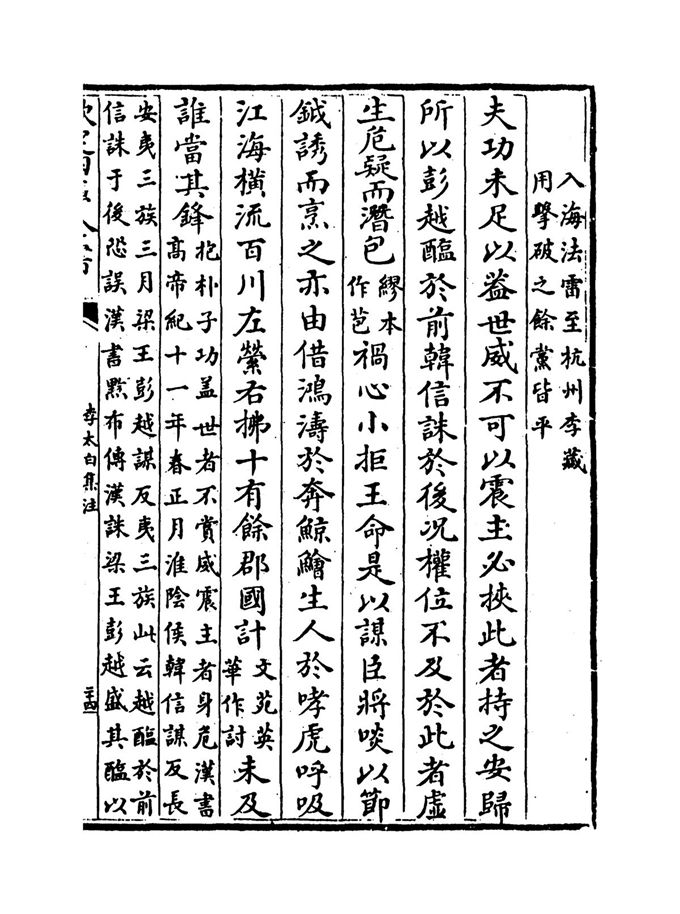 入海法雷至杭州李藏
用擊破之餘黨皆平
夫功未足以葢世威不可以震主必挾此者持之安歸
所以彭越醢於前韓信誅於後况權位不及於此者虚
生危疑而潛包
繆本
作苞
禍心小拒王命是以謀臣將啖以節
鉞誘而烹之亦由借鴻濤於奔鯨鱠生人於哮虎呼吸
江海横流百川左縈右拂十有餘郡國計
文苑英
華作討
未及
誰當其鋒
抱朴子功盖世者不賞威震主者身危漢書
髙帝紀十一年春正月淮陰侯韓信謀反長
安夷三族三月梁王彭越謀反夷三族此云越醢於前
信誅于後恐誤漢書黥布傳漢誅梁王彭越盛其醢以
李太白集注